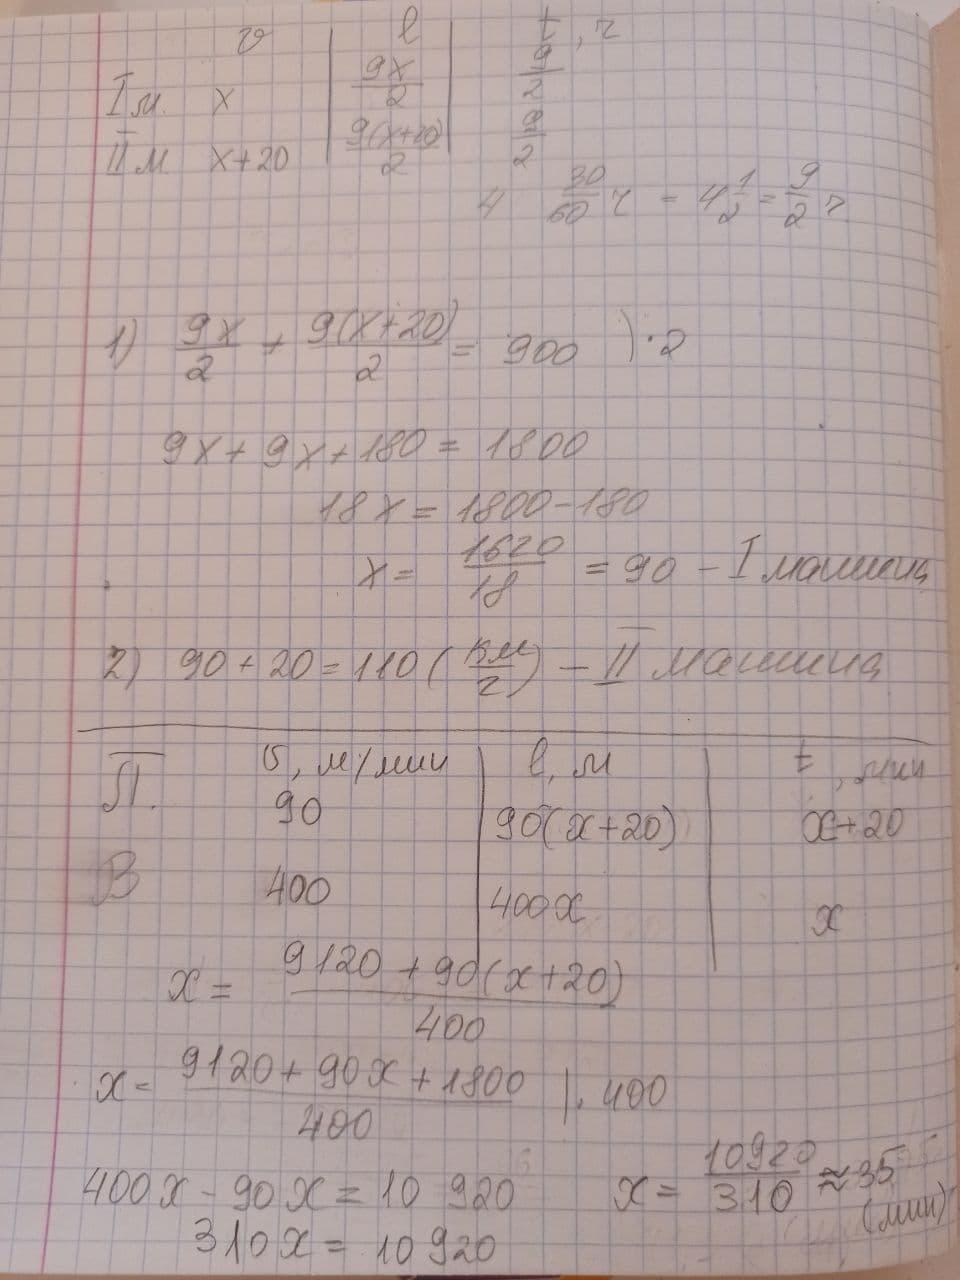 v | l | t, ч
I м. x | 9x/2 | 9/2
II м x+20 | 9(x+20)/2 | 9/2
4 30/60 ч = 4 1/2 = 9/2 ч
1) 9x/2 + 9(x+20)/2 = 900 ) · 2
9x + 9x + 180 = 1800
18x = 1800 - 180
x = 1620/18 = 90 - I машина
2) 90 + 20 = 110 (км/ч) - II машина
П. | v, м/мин | l, м | t, мин
90 | 90(x+20) | x+20
В 400 | 400x | x
x = (9120 + 90(x+20))/400
x = (9120 + 90x + 1800)/400 | · 400
400x - 90x = 10 920
x = 10920/310 ≈ 35 (мин)
310x = 10920